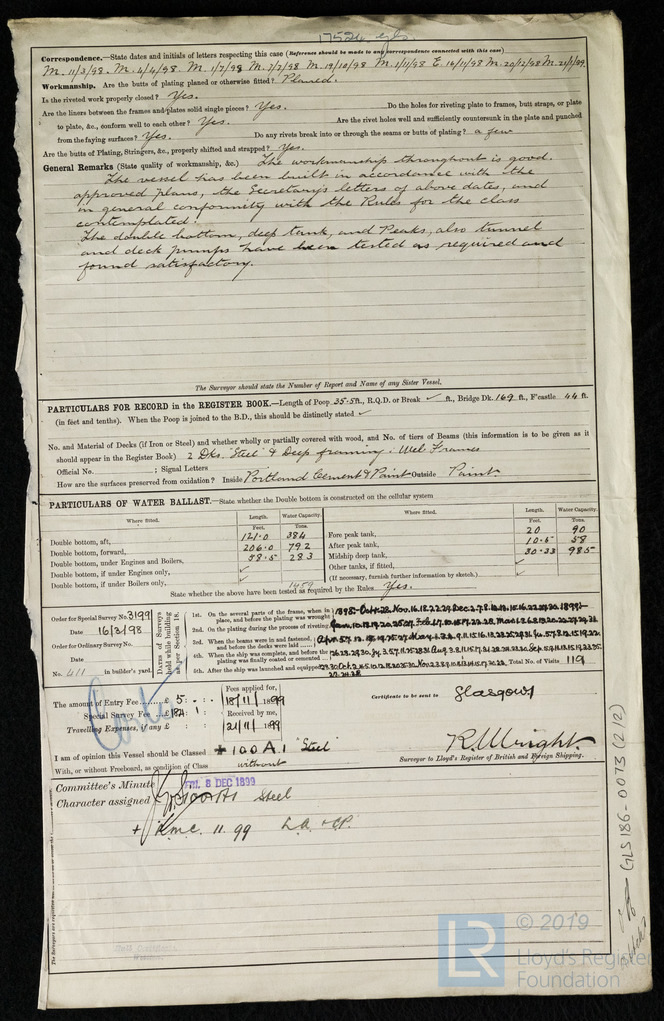 17526 gls.
Correspondence.—State dates and initials of letters respecting this case (Reference should be made to any correspondence connected with this case)
M. 11/3/98. M. 4/4/98. M. 1/7/98 M. 7/7/98 M. 19/10/98 M. 1/11/98 E. 16/11/98 M. 20/12/98 M. 21/1/99.
Workmanship. Are the butts of plating planed or otherwise fitted? Planed.
Is the riveted work properly closed? Yes.
Are the liners between the frames and plates solid single pieces? Yes. Do the holes for riveting plate to frames, butt straps, or plate
to plate, &c., conform well to each other? Yes. Are the rivet holes well and sufficiently countersunk in the plate and punched
from the faying surfaces? Yes. Do any rivets break into or through the seams or butts of plating? a few
Are the butts of Plating, Stringers, &c., properly shifted and strapped? Yes.
General Remarks (State quality of workmanship, &c.) The workmanship throughout is good.
The vessel has been built in accordance with the
approved plans, the Secretary's letters of above dates, and
in general conformity with the Rules for the class
contemplated.
The double bottom, deep tank, and Peaks, also tunnel
and deck pumps have been tested as required and
found satisfactory.
The Surveyor should state the Number of Report and Name of any Sister Vessel.
PARTICULARS FOR RECORD in the REGISTER BOOK.—Length of Poop 35.5 ft., R.Q.D. or Break ✓ ft., Bridge Dk. 169 ft., F'castle 44 ft.
(in feet and tenths). When the Poop is joined to the B.D., this should be distinctly stated ✓
No. and Material of Decks (if Iron or Steel) and whether wholly or partially covered with wood, and No. of tiers of Beams (this information is to be given as it
should appear in the Register Book) 2 Dks "Steel" & Deep framing: Web Frames
Official No. ; Signal Letters
How are the surfaces preserved from oxidation? Inside Portland Cement & Paint Outside Paint.
PARTICULARS OF WATER BALLAST.—State whether the Double bottom is constructed on the cellular system
Where fitted. Length. Water Capacity. Where fitted. Length. Water Capacity.
Feet. Tons. Feet. Tons.
Double bottom, aft, 121.0 384 Fore peak tank, 20 90
Double bottom, forward, 206.0 792 After peak tank, 10.5 58
Double bottom, under Engines and Boilers, 58.5 283 Midship deep tank, 30.33 985
Double bottom, if under Engines only, ✓ Other tanks, if fitted, ✓
Double bottom, if under Boilers only, ✓ 1459 (If necessary, furnish further information by sketch.) ✓
State whether the above have been tested as required by the Rules Yes.
Order for Special Survey No. 3199
Date 16/3/98
Order for Ordinary Survey No.
Date
No. 411 in builder's yard.
Dates of Surveys held while building as per Section 18.
1st. On the several parts of the frame, when in place, and before the plating was wrought
2nd. On the plating during the process of riveting
3rd. When the beams were in and fastened, and before the decks were laid
4th. When the ship was complete, and before the plating was finally coated or cemented
5th. After the ship was launched and equipped
Total No. of Visits 119
The amount of Entry Fee £ 5 : - : - Fees applied for, 18/11/1899
Special Survey Fee £ Received by me,
Travelling Expenses, if any £ 21/11/1899
Certificate to be sent to Glasgow
I am of opinion this Vessel should be Classed + 100 A 1 "Steel"
With, or without Freeboard, as condition of Class without
R. Wright.
Surveyor to Lloyd's Register of British and Foreign Shipping.
Committee's Minute FRI. 8 DEC 1899
Character assigned 100 A1 Steel
+ L.M.C. 11.99 L.A. & C.P.
GLS186-0073 (2/2)
© 2019
LR
Lloyd's Register
Foundation